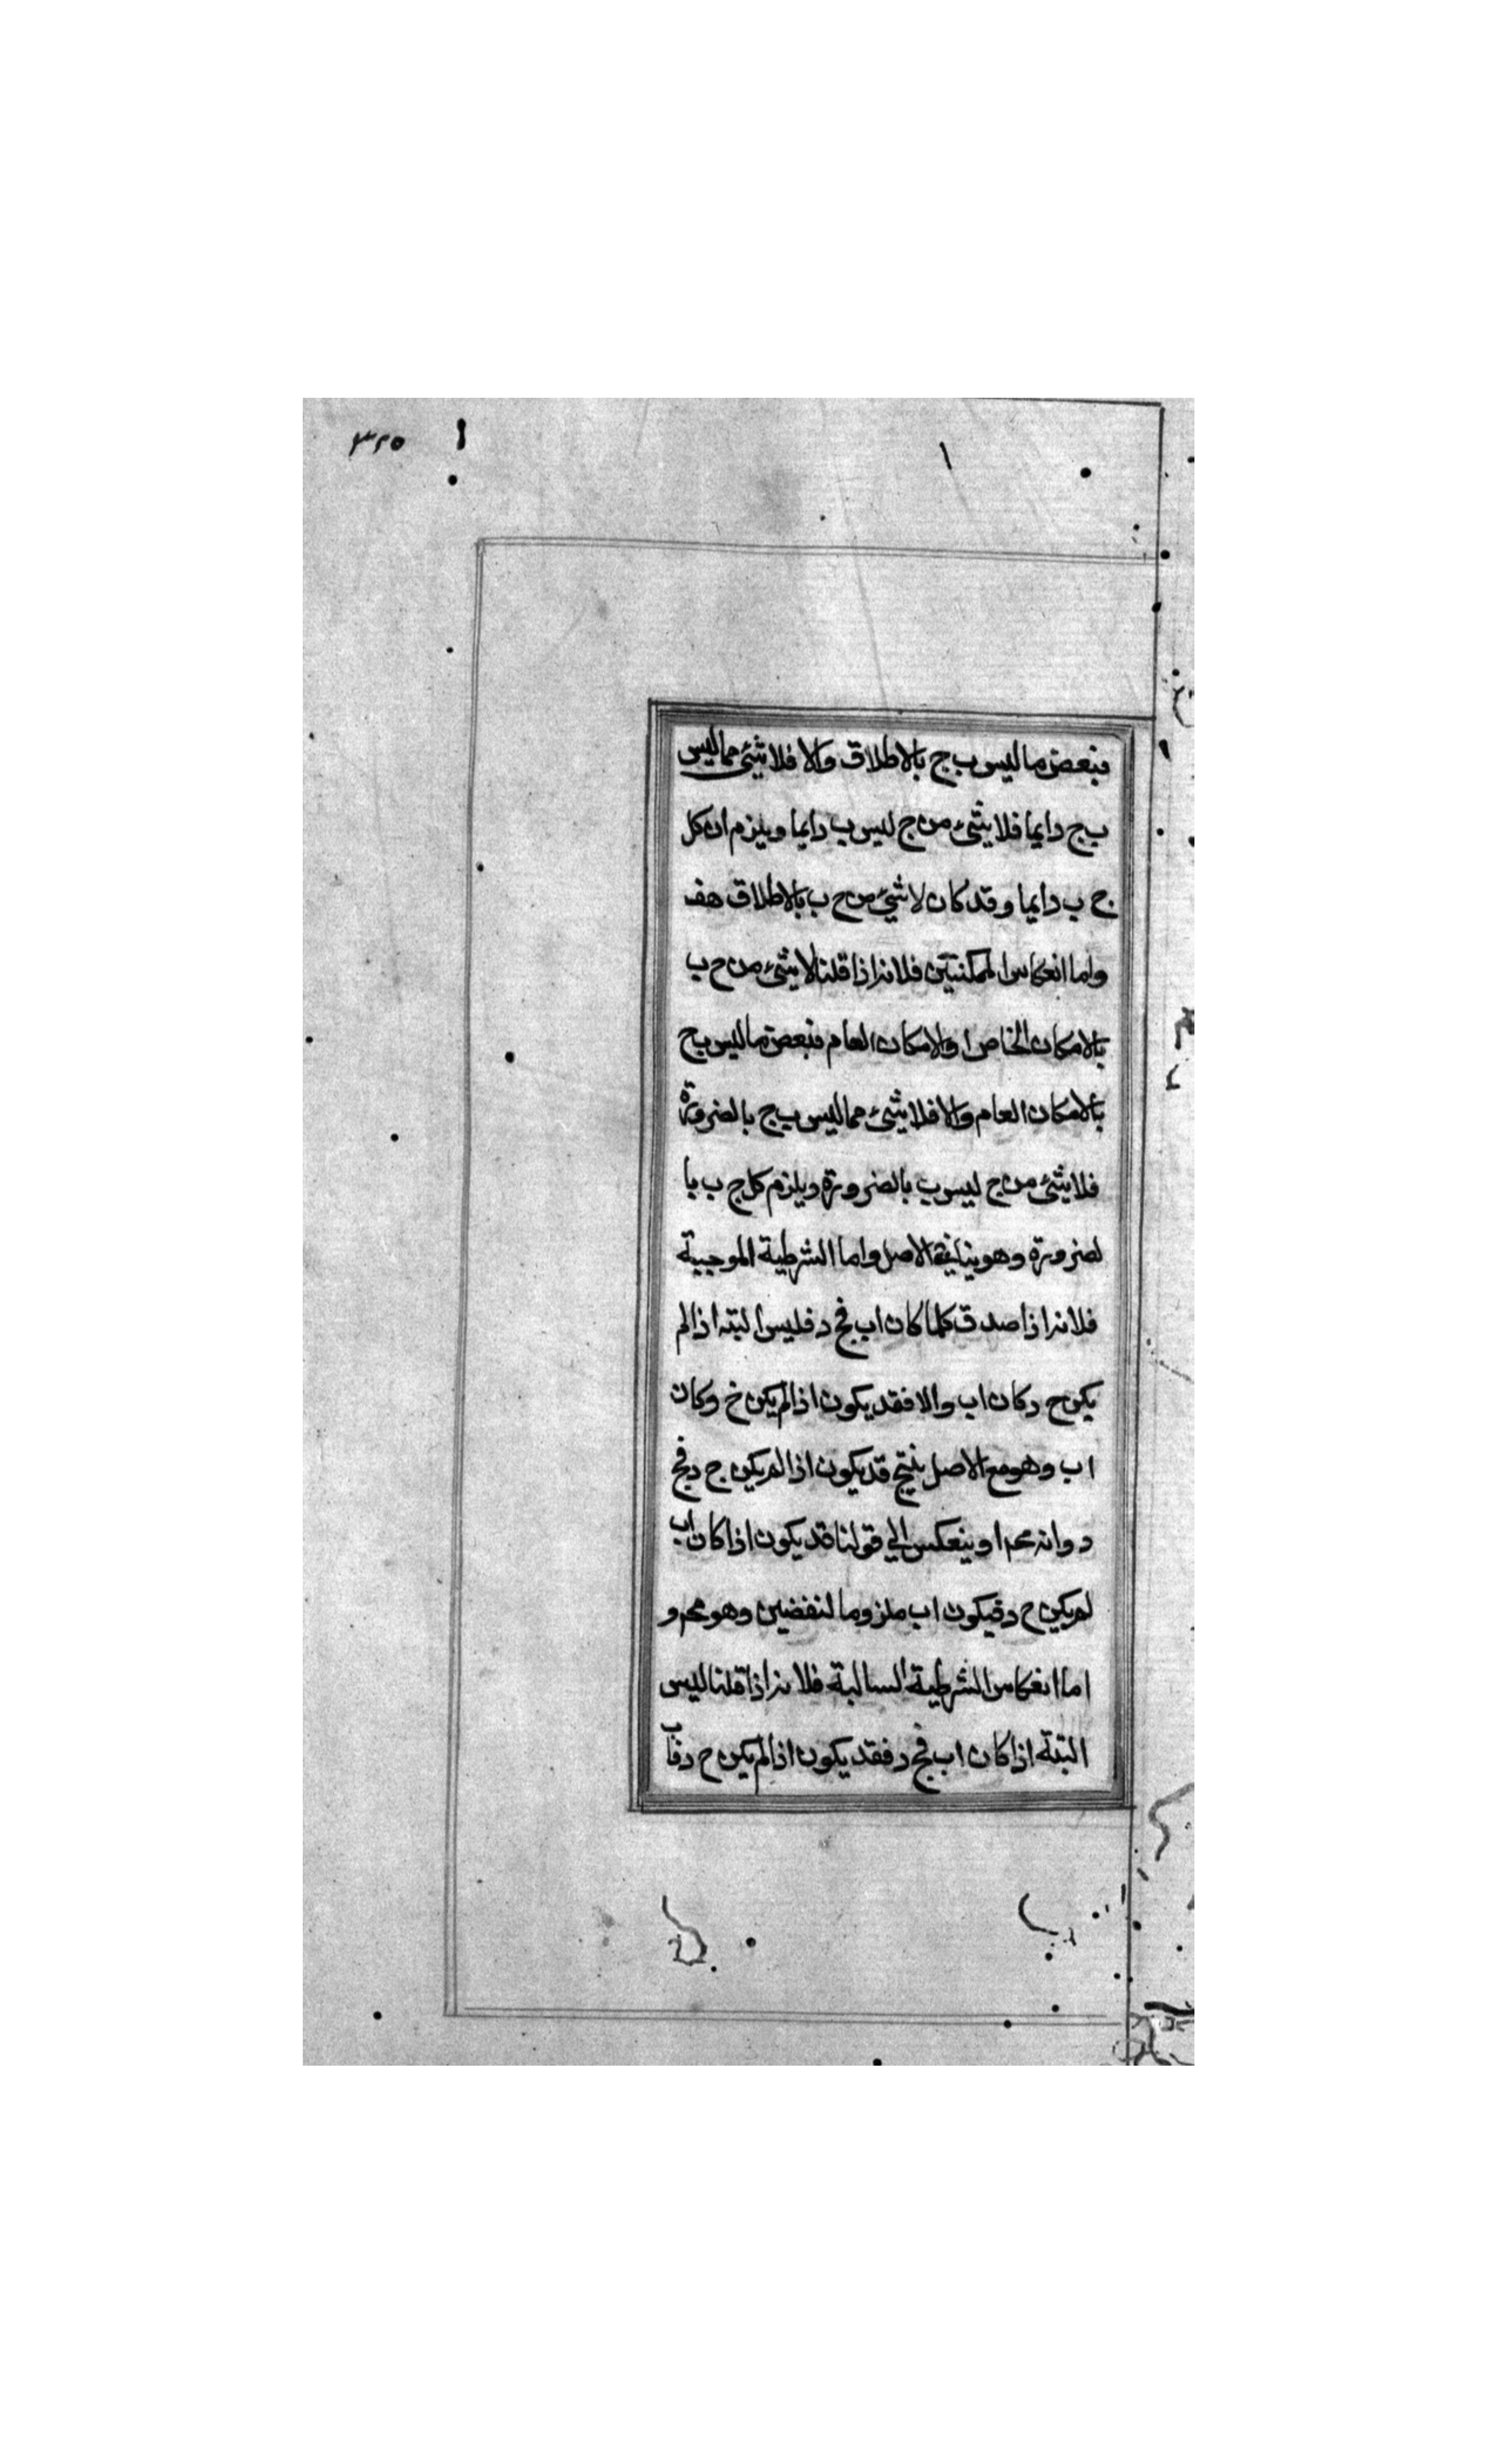 ٣٢٥
فبعض ما ليس ب ج بالاطلاق والا فلا شئ مما ليس
ب ج دايما فلا شئ من ج ليس ب دايما ويلزم ان كل
ج ب دايما وقد كان لا شئ من ج ب بالاطلاق هف
واما انعكاس الممكنتين فلانه اذا قلنا لا شئ من ج ب
بالامكان الخاص او الامكان العام فبعض ما ليس ب ج
بالامكان العام والا فلا شئ مما ليس ب ج بالضرورة
فلا شئ من ج ليس ب بالضرورة ويلزم كل ج ب با
لضرورة وهو ينافي الاصل واما الشرطية الموجبة
فلانه اذا صدق كلما كان اب فج د فليس البته اذا لم
يكن ج د كان اب والا فقد يكون اذا لم يكن ج وكان
اب وهو مع الاصل ينتج قد يكون اذا لم يكن ج د فج
د وانه محم او ينعكس الي قولنا قد يكون اذا كان اب
لم يكن ج د فيكون اب ملزوما لنقضين وهو محم و
اما انعكاس الشرطية السالبة فلانه اذا قلنا ليس
البتة اذا كان اب فج د فقد يكون اذا لم يكن ج د فاب